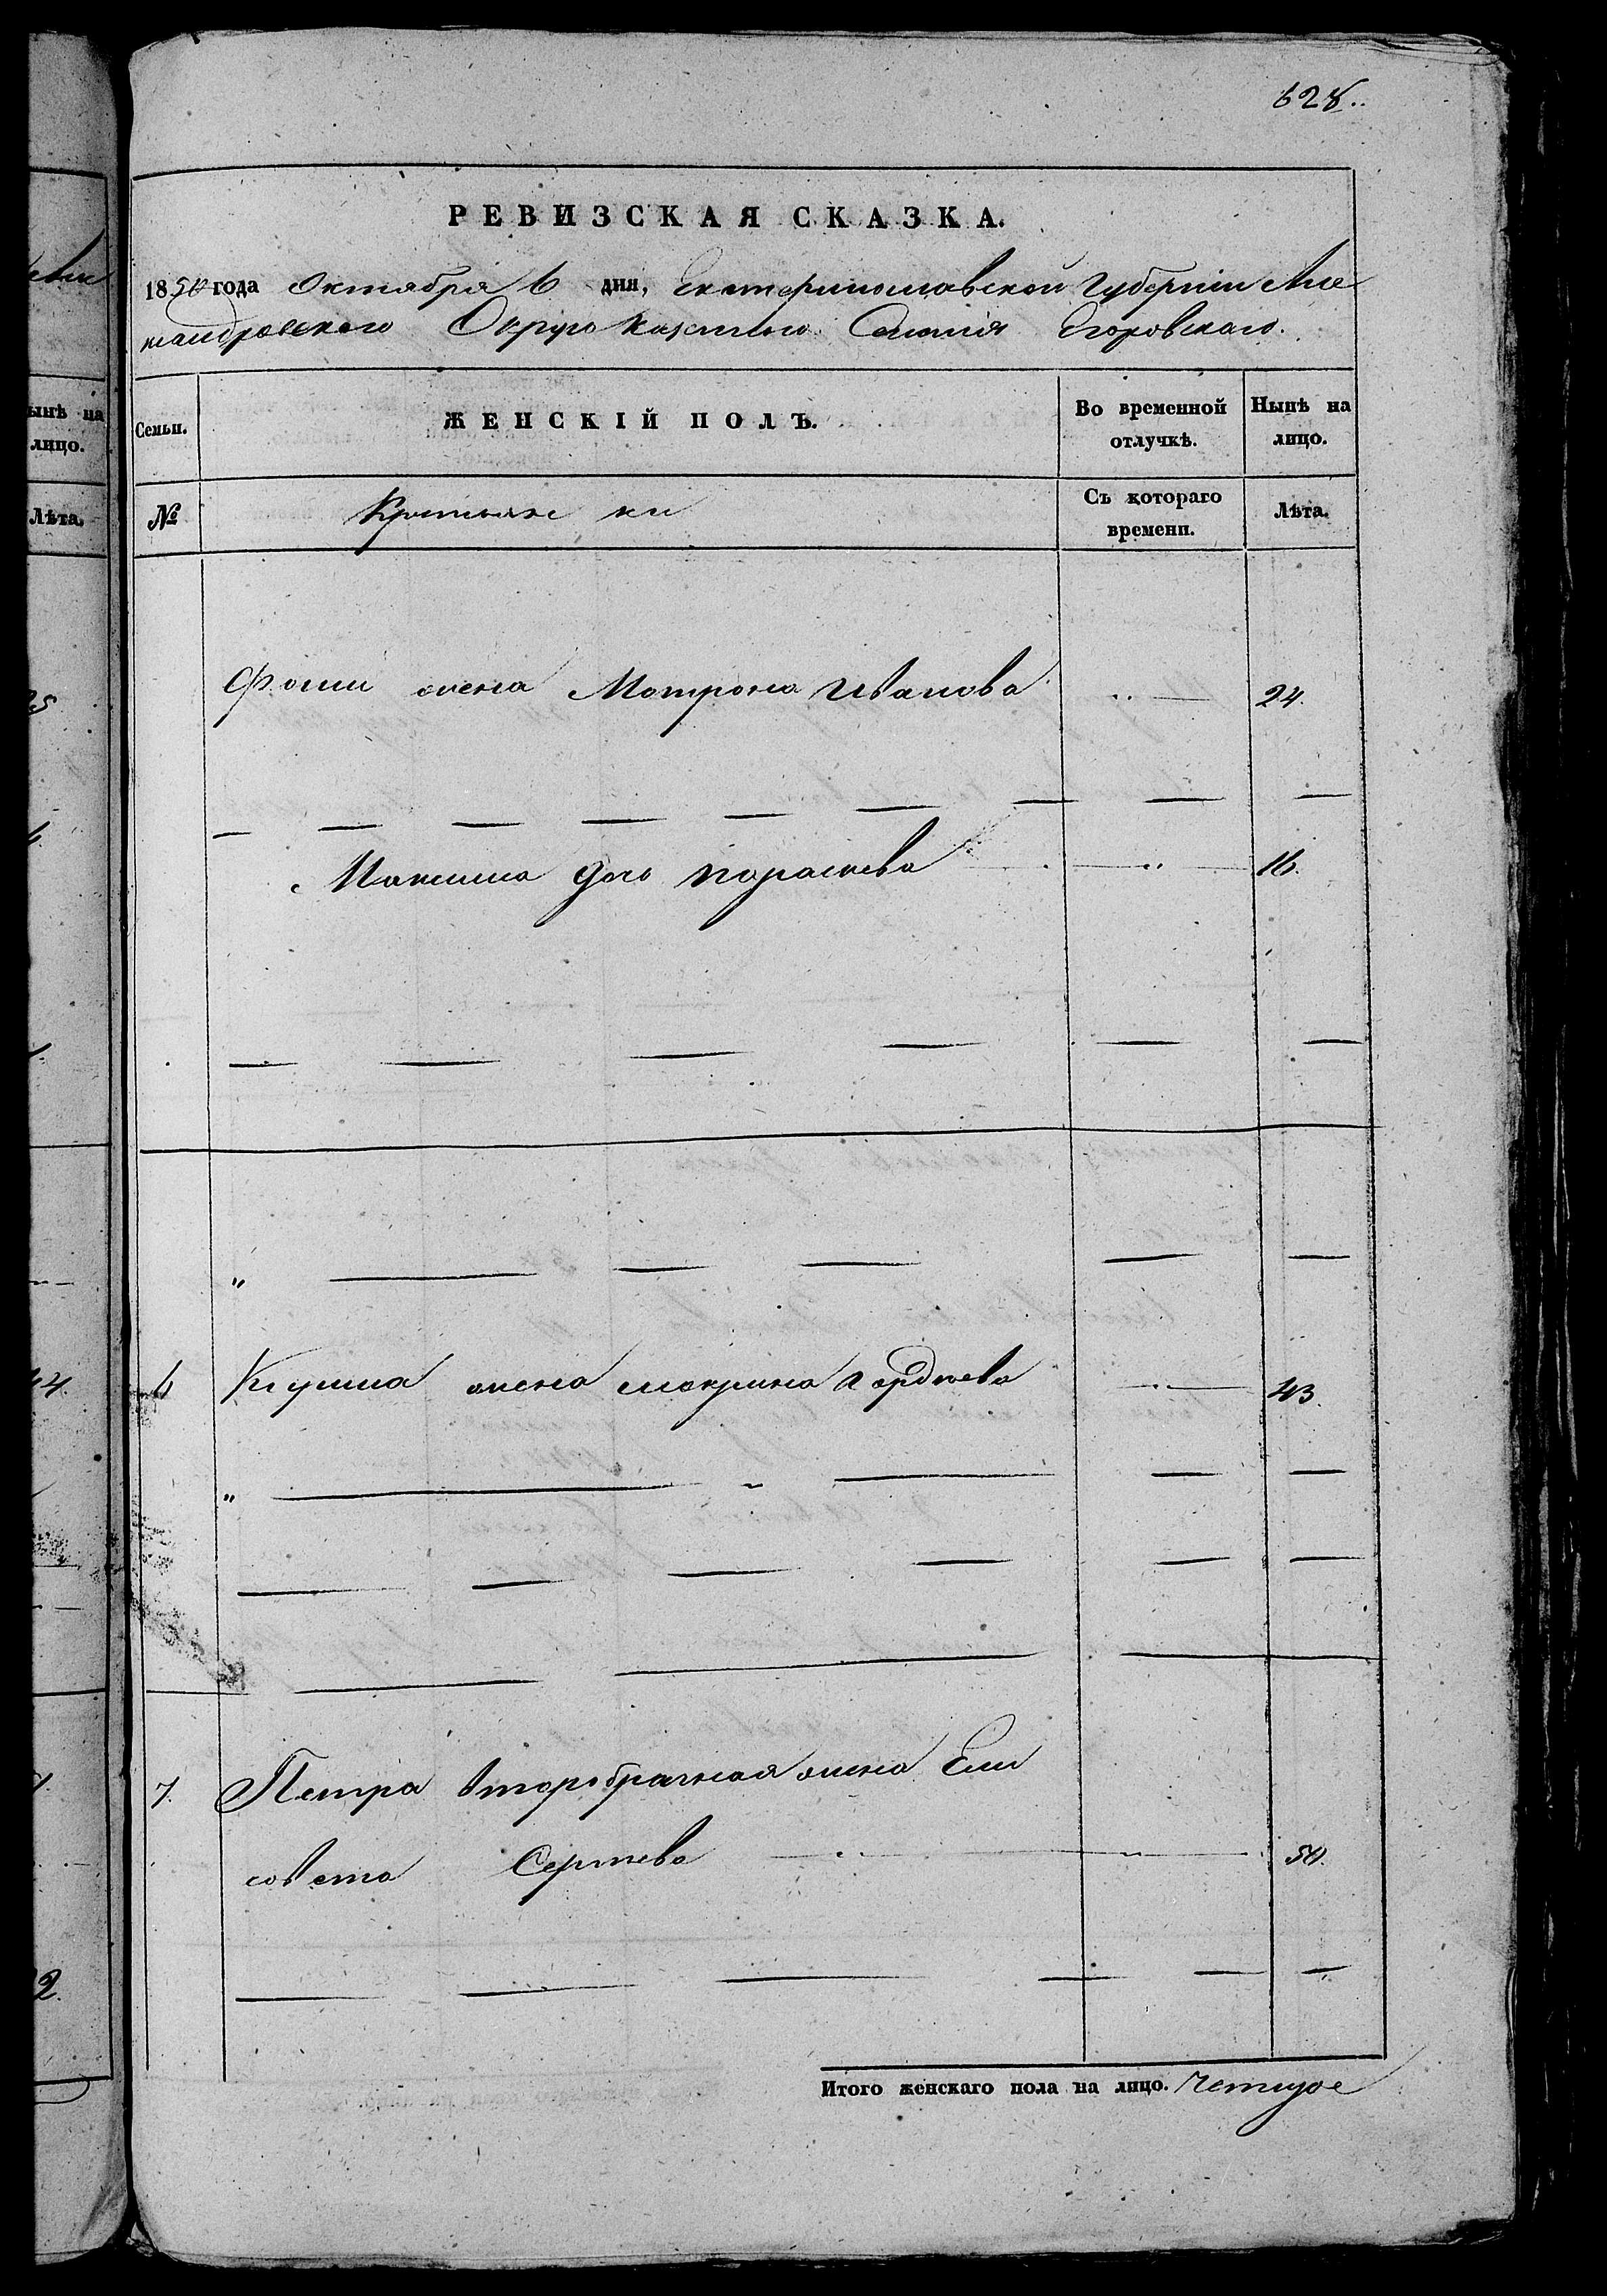 628..
РЕВИЗСКАЯ СКАЗКА.
1850 года Октября 6 дня, Екатеринославской Губернии Але
ксандровского Округа казенного Селения Егоровскаго.
Семьи.
ЖЕНСКІЙ ПОЛЪ.
Во временной отлучкѣ.
Нынѣ на лицо.
№
Крестьянс ки
Съ котораго времени.
Лѣта.
Фомы жена Матрона Иванова 24.
Максима дочь Параскева 16.
6 жена Макрина Гордѣева 43.
7. Петра второбрачная жена Ели
совета Сергѣева 50.
Итого женскаго пола на лицо. Четыре
ынѣ на
лицо.
Лѣта.